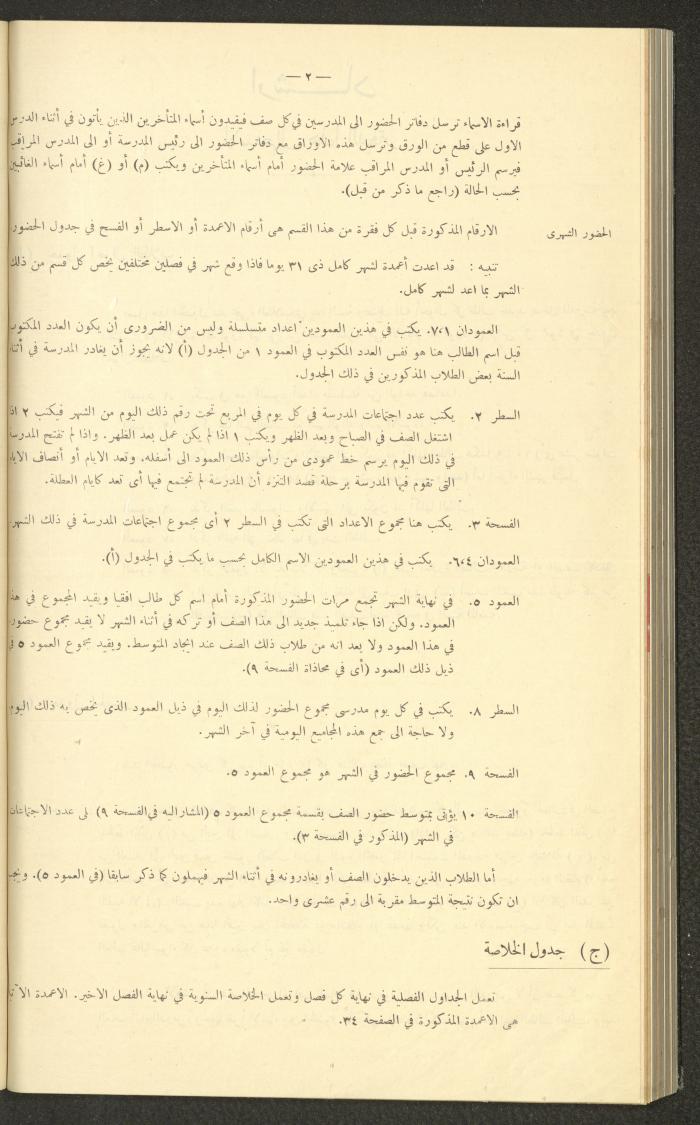 — ٢ —
قراءة الاسماء ترسل دفاتر الحضور الى المدرسين في كل صف فيقيدون أسماء المتأخرين الذين يأتون في أثناء الدرس
الاول على قطع من الورق وترسل هذه الاوراق مع دفاتر الحضور الى رئيس المدرسة أو الى المدرس المراقب
فيرسم الرئيس أو المدرس المراقب علامة الحضور أمام أسماء المتأخرين ويكتب (م) أو (غ) أمام أسماء الغائبين
بحسب الحالة (راجع ما ذكر من قبل).
الحضور الشهرى
الارقام المذكورة قبل كل فقرة من هذا القسم هى أرقام الاعمدة أو الاسطر أو الفسح في جدول الحضور
تنبيه : قد اعدت أعمدة لشهر كامل ذى ٣١ يوما فاذا وقع شهر في فصلين مختلفين يخص كل قسم من ذلك
الشهر بما اعد لشهر كامل.
العمودان ٧،١. يكتب في هذين العمودين اعداد متسلسلة وليس من الضرورى أن يكون العدد المكتوب
قبل اسم الطالب هنا هو نفس العدد المكتوب في العمود ١ من الجدول (أ) لانه يجوز أن يغادر المدرسة في أثنا
السنة بعض الطلاب المذكورين في ذلك الجدول.
السطر ٢. يكتب عدد اجتماعات المدرسة في كل يوم في المربع تحت رقم ذلك اليوم من الشهر فيكتب ٢ اذا
اشتغل الصف في الصباح وبعد الظهر ويكتب ١ اذا لم يكن عمل بعد الظهر. واذا لم تفتح المدرسة
في ذلك اليوم يرسم خط عمودى من رأس ذلك العمود الى أسفله. وتعد الايام أو أنصاف الايام
التى تقوم فيها المدرسة برحلة قصد التنزه أن المدرسة لم تجتمع فيها أى تعد كايام العطلة.
الفسحة ٣. يكتب هنا مجموع الاعداد التى تكتب في السطر ٢ أى مجموع اجتماعات المدرسة في ذلك الشهر
العمودان ٦،٤. يكتب في هذين العمودين الاسم الكامل بحسب ما يكتب في الجدول (أ).
العمود ٥. في نهاية الشهر تجمع مرات الحضور المذكورة أمام اسم كل طالب افقيا ويقيد المجموع في هذ
العمود. ولكن اذا جاء تلميذ جديد الى هذا الصف أو تركه في أثناء الشهر لا يقيد مجموع حضوره
في هذا العمود ولا يعد انه من طلاب ذلك الصف عند ايجاد المتوسط. ويقيد مجموع العمود ٥ في
ذيل ذلك العمود (أى في محاذاة الفسحة ٩).
السطر ٨. يكتب في كل يوم مدرسى مجموع الحضور لذلك اليوم في ذيل العمود الذى يخص به ذلك اليوم
ولا حاجة الى جمع هذه المجاميع اليومية في آخر الشهر.
الفسحة ٩. مجموع الحضور في الشهر هو مجموع العمود ٥.
الفسحة ١٠ يؤتى بمتوسط حضور الصف بقسمة مجموع العمود ٥ (المشار اليه في الفسحة ٩) لى عدد الاجتماعات
في الشهر (المذكور في الفسحة ٣).
أما الطلاب الذين يدخلون الصف أو يغادرونه في أثناء الشهر فيهملون كما ذكر سابقا (في العمود ٥). ويجب
ان تكون نتيجة المتوسط مقربة الى رقم عشرى واحد.
(ج) جدول الخلاصة
تعمل الجداول الفصلية في نهاية كل فصل وتعمل الخلاصة السنوية في نهاية الفصل الاخير. الاعمدة الآتية
هى الاعمدة المذكورة في الصفحة ٣٤.